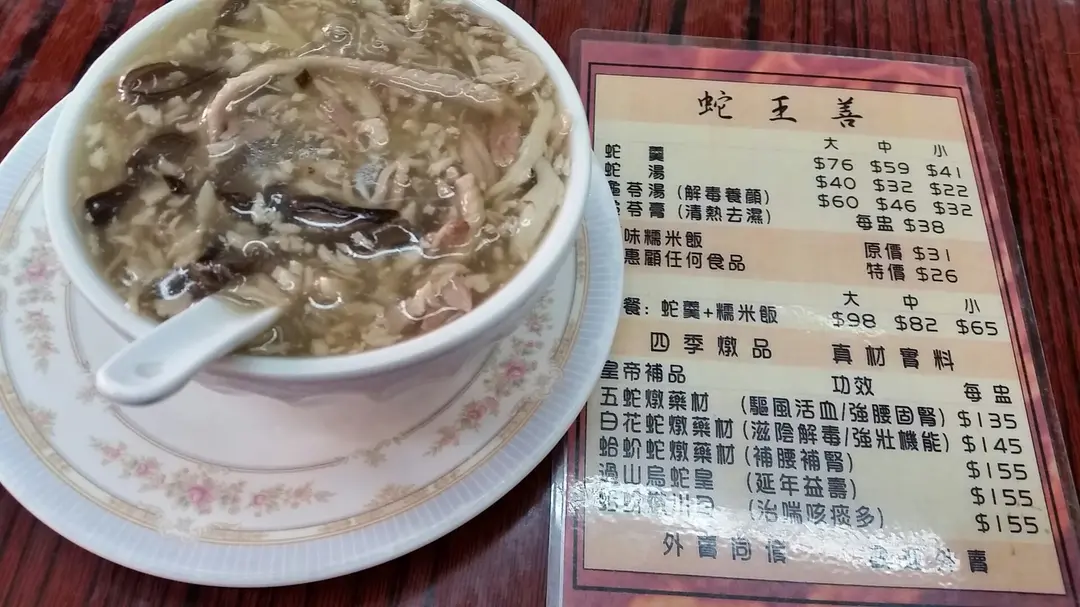 蛇王善
大 中 小
蛇羹 $76 $59 $41
蛇湯 $40 $32 $22
龜苓湯 (解毒養顏) $60 $46 $32
苓膏 (清熱去濕) 每盅 $38
味糯米飯 原價 $31
惠顧任何食品 特價 $26
大 中 小
餐：蛇羹+糯米飯 $98 $82 $65
四季燉品 真材實料
皇帝補品 功效 每盅
五蛇燉藥材 (驅風活血/強腰固腎) $135
白花蛇燉藥材 (滋陰解毒/強壯機能) $145
蛤蚧蛇燉藥材 (補腰補腎) $155
過山烏蛇皇 (延年益壽) $155
(治喘咳痰多) $155
外賣 外賣